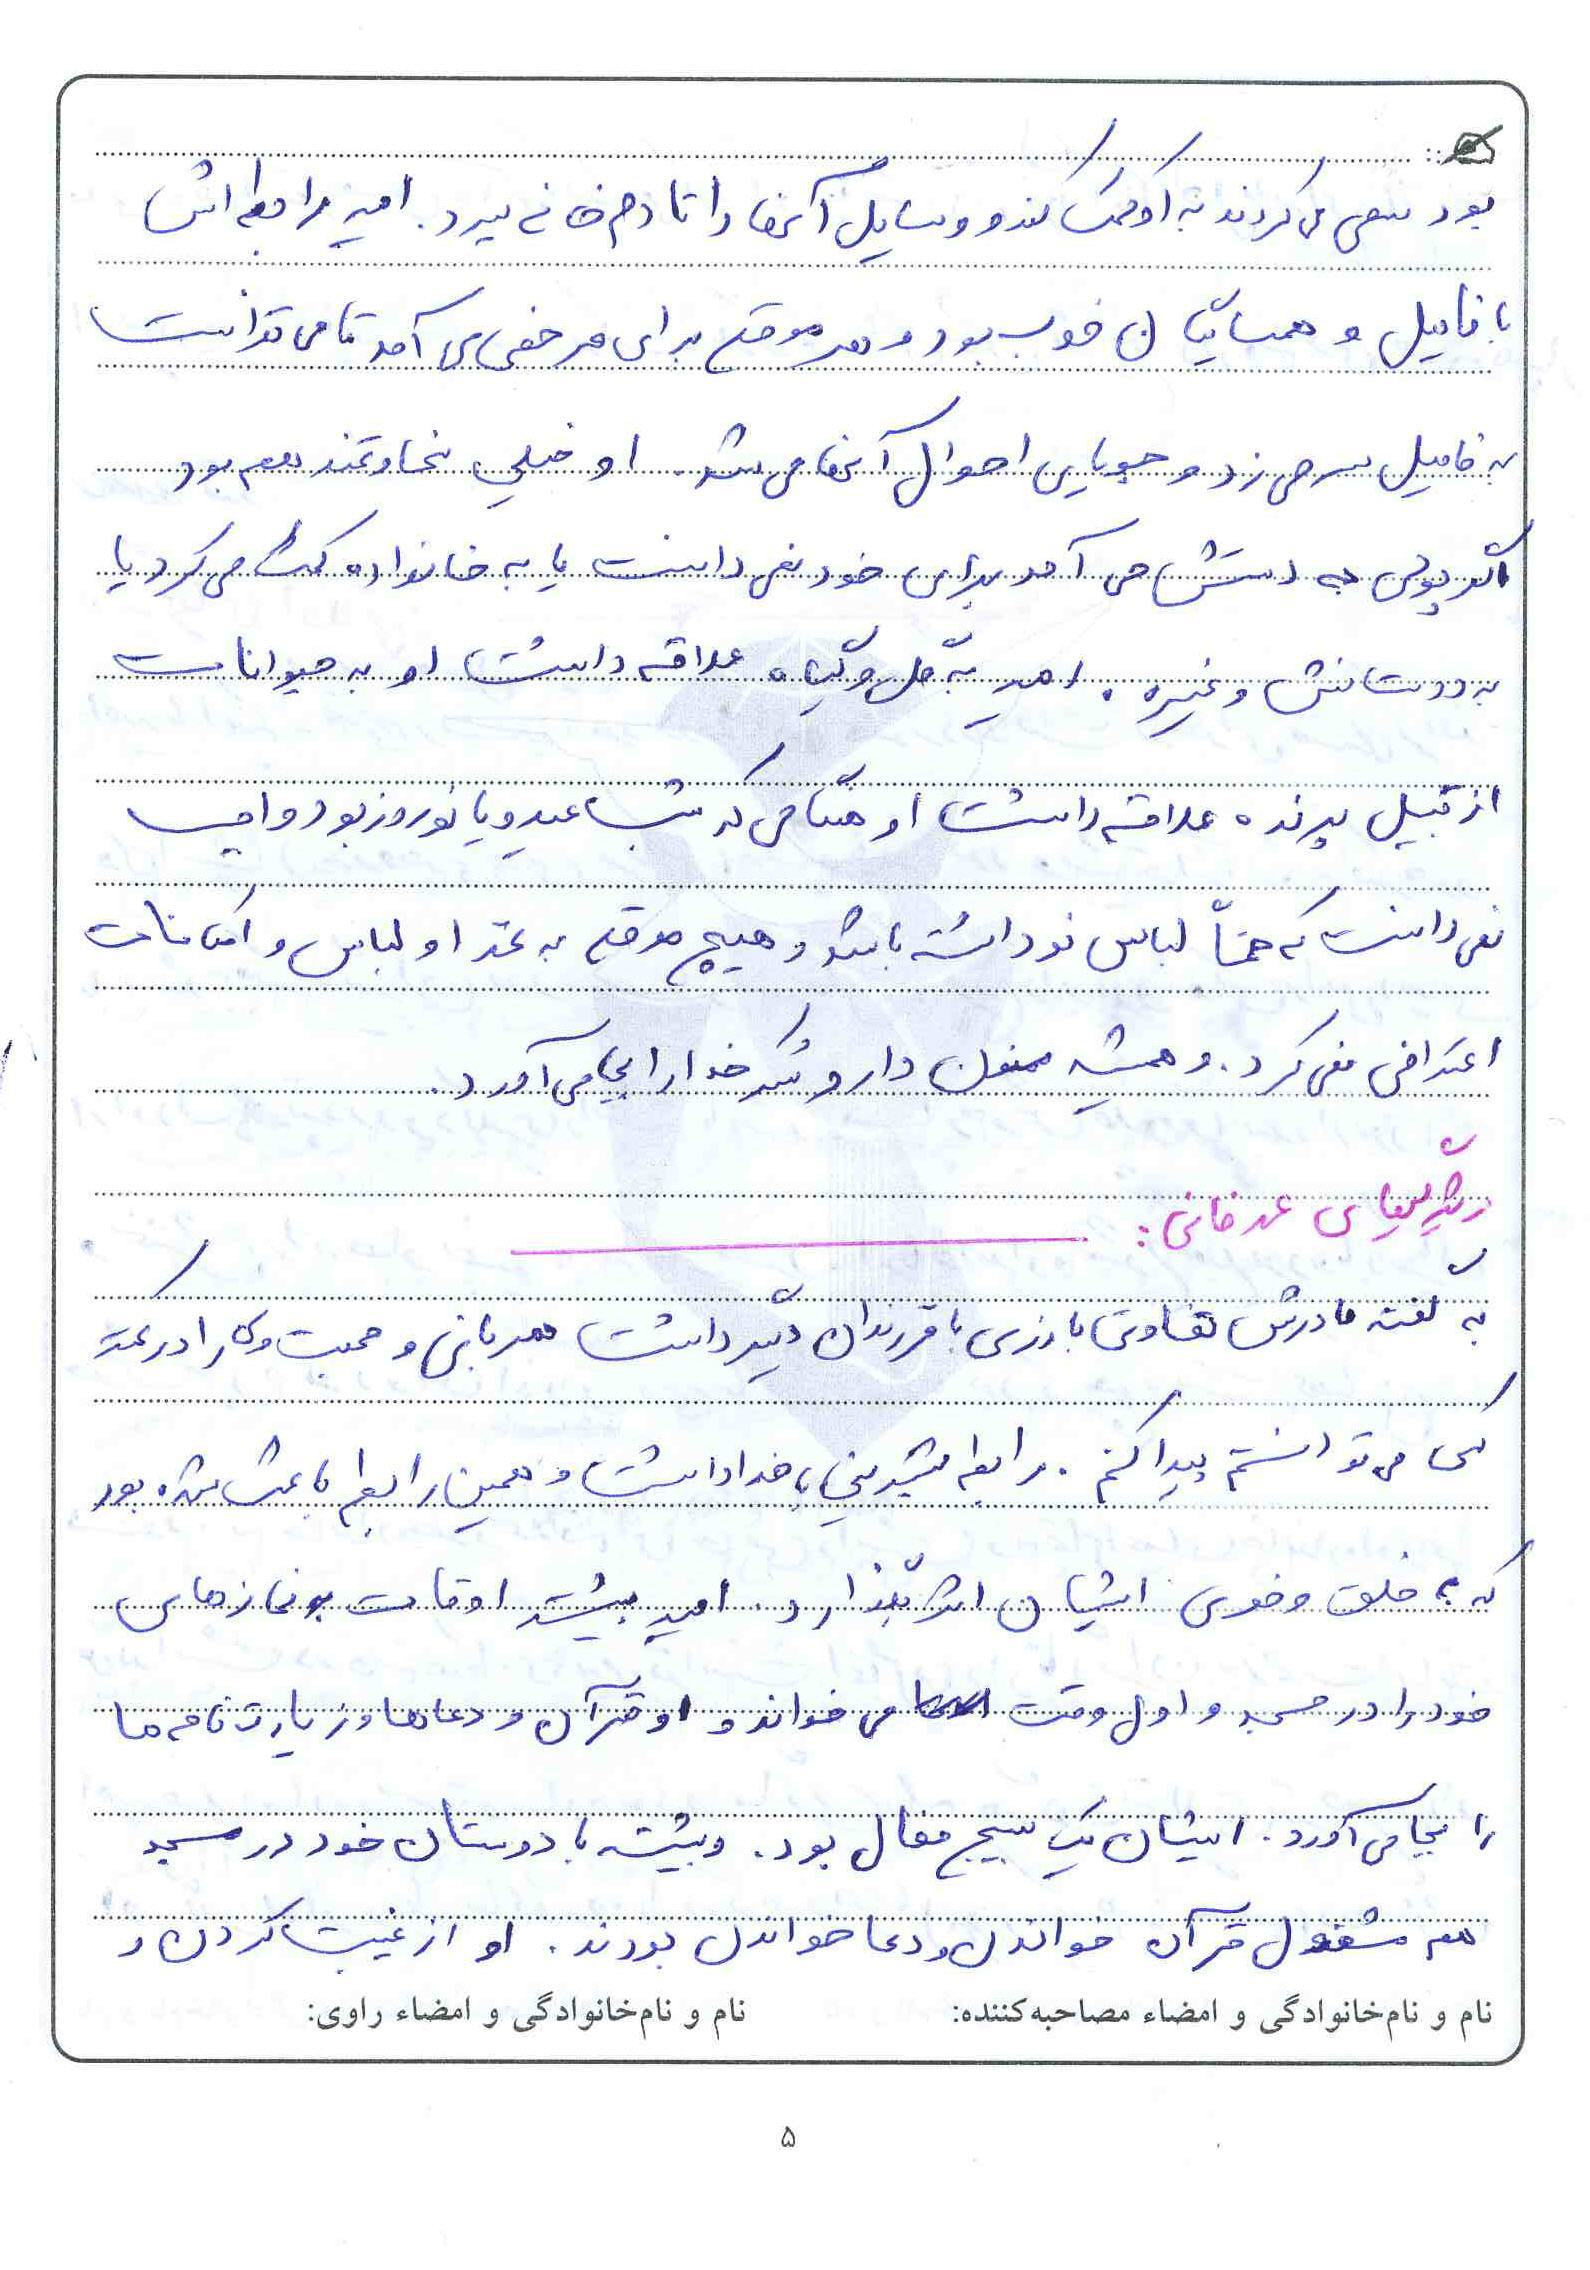 بود سعی می‌کردند به او کمک کند و وسایل آنها را تا دم خانه ببرد. امیر رابطه‌اش
با فامیل و همسایگان خوب بود و هر موقع برای مرخصی می آمد تا می توانست
به فامیل سر می زد و جویایی احوال آنها می شد. او خیلی سخاوتمند هم بود
اگر پولی به دستش می آمد برای خود نمی دانست یا به خانواده کمک می کرد یا
به دوستانش و غیره. امیر به گل و گیاه علاقه داشت او به حیوانات
از قبیل پرنده علاقه داشت او هنگامی که شب عید و یا نوروز بود واجب
نمی دانست که حتماً لباس نو داشته باشد و هیچ موقع به غذا و لباس و امکانات
اعتراض نمی کرد. و همیشه ممنون دار و شکر خدا را بجا می آورد.
ویژگیهای عرفانی:
به گفته مادرش تفاوتی بارزی با فرزندان دیگر داشت مهربانی و محبت و کار را در کمتر
کسی می توانستم پیدا کنم. رابطه شیرینی با خدا داشت و همین رابطه باعث شده بود
که به خلق و خوی ایشان اثر بگذارد. امیر بیشتر اوقات نمازهای
خود را در مسجد و اول وقت می خواند و او قرآن و دعاها و زیارت نامه ها
را بجا می آورد. ایشان یک بسیج فعال بود. و بیشتر با دوستان خود در مسجد
هم مشغول قرآن خواندن و دعا خواندن بودند. او از غیبت کردن و
نام و نام‌خانوادگی و امضاء مصاحبه‌کننده: نام و نام‌خانوادگی و امضاء راوی:
۵